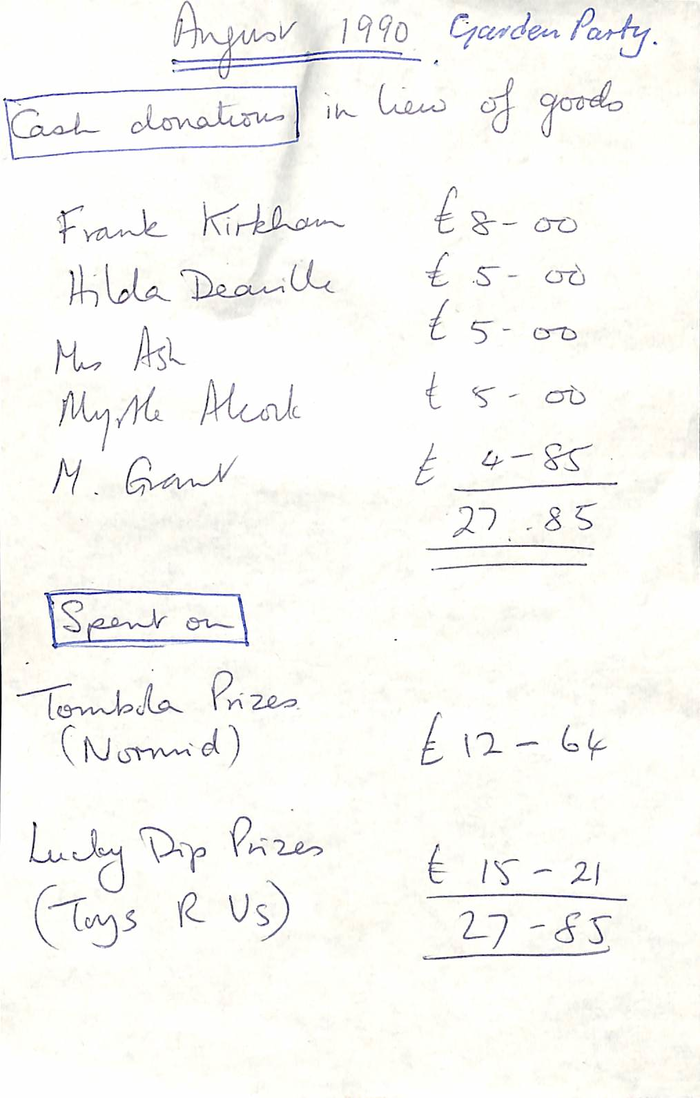 August 1990 Garden Party.
Cash donations in lieu of goods
Frank Kirkham £8-00
Hilda Deaville £5-00
Mrs Ash £5-00
Myrtle Alcock £5-00
M. Grant £4-85
27.85
Spent on
Tombola Prizes
(Normid) £12-64
Lucky Dip Prizes £15-21
(Toys R Us) 27-85